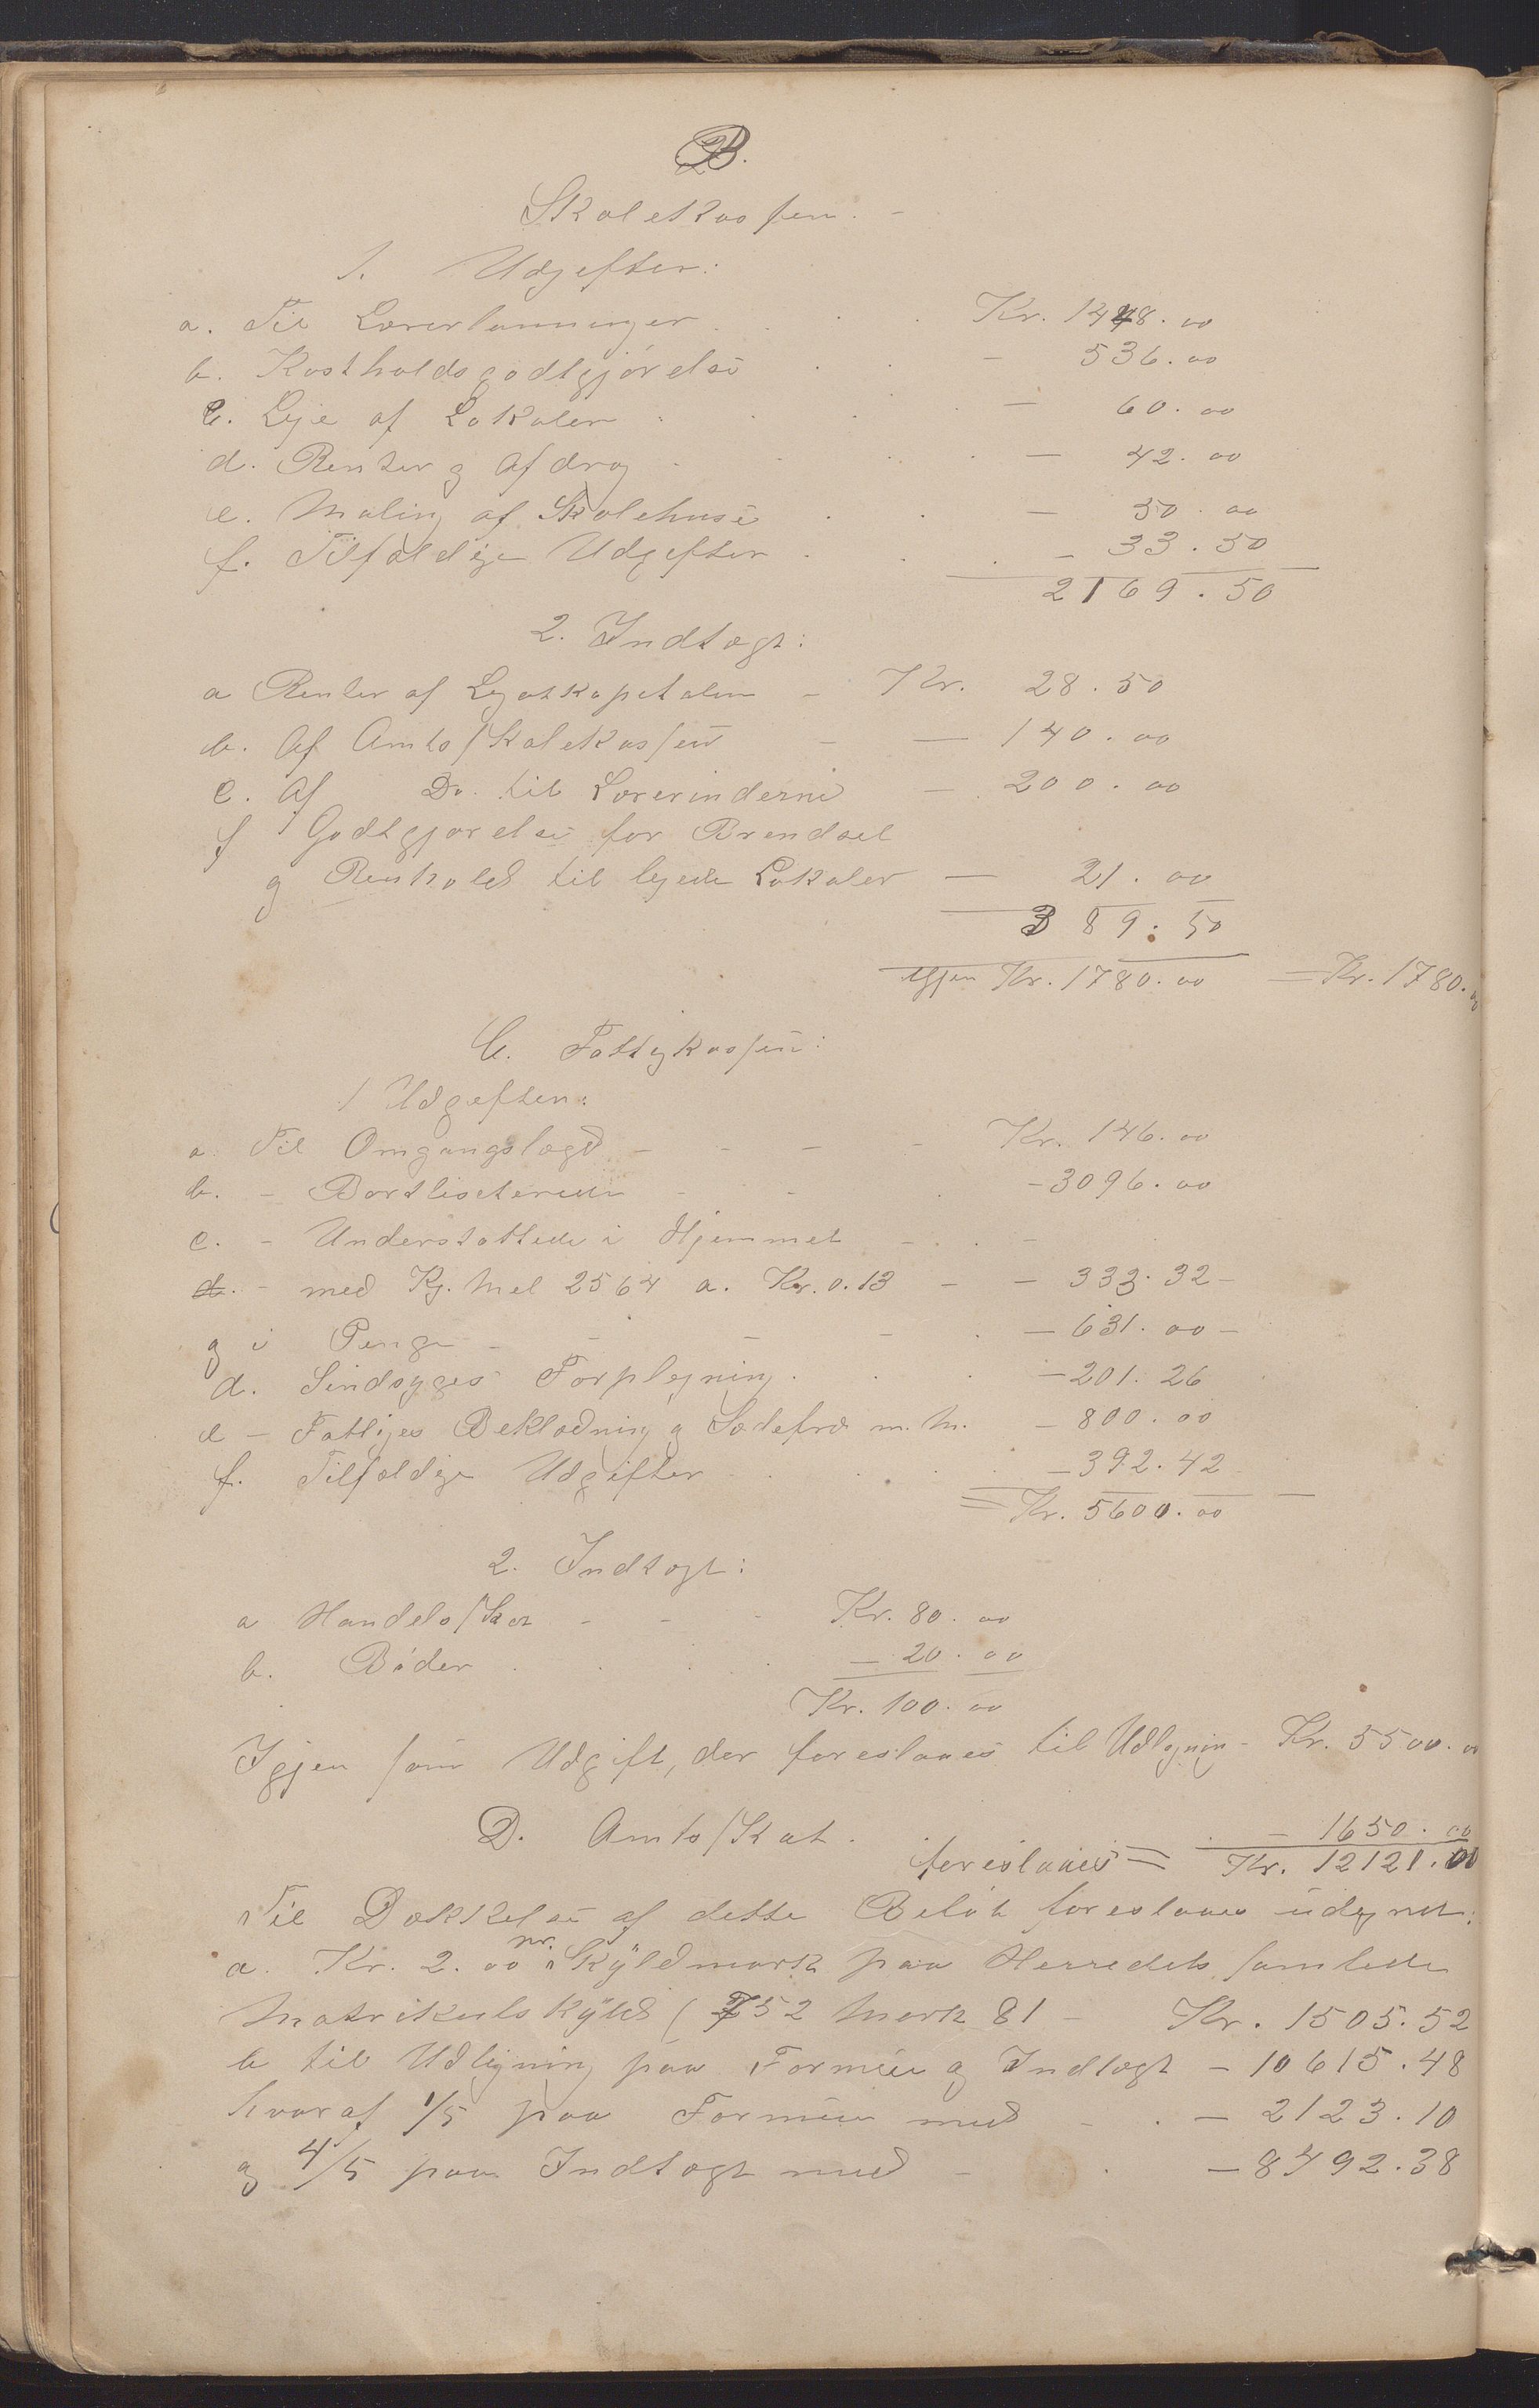 B.
Skolekassen. -
1. Udgifter:
a. Til Lærerlønninger . . . Kr. 1448. 00
b. Kostholdsgodtgjörelse . . - 536. 00
c. Leje af Lokaler . . . - 60. 00
d. Renter og Afdrag . . . - 42. 00
e. Maling af Skolehuse . . - 50. 00
f. Tilfældige Udgifter . . . - 33. 50
2169. 50
2. Indtægt:
a Renter af Legatkapitalen - Kr. 28. 50
b. Af Amtsskolekassen - - 140. 00
c. Af Do. til Lærerinderne - 200. 00
f Godtgjørelse for Brendsel
og Renhold til lejede Lokaler - 21. 00
389. 50
igjen Kr. 1780. 00 = Kr. 1780. 00
C. Fattigkassen:
1 Udgifter:
a. Til Omgangslægd - - - Kr. 146. 00
b. - Bortliciterede - - - 3096. 00
c. - Understøttede i Hjemmet - . -
d. - med Kg. Mel 2564 a. Kr. 0.13 - - 333. 32 -
og i Penge - - - - - 631. 00 -
d. Sindsyges Forplejning . . - 201. 26
e - Fattiges Beklædning og Sædefrø m. m. - 800. 00
f. Tilfældige Udgifter . . . - 392. 42
= Kr. 5600. 00
2. Indtægt:
a Handelsskat - - - Kr. 80. 00
b. Böder . . . - 20. 00
Kr. 100. 00
Igjen som Udgift, der foreslaaes til Udlignin - Kr. 5500. 00
D. Amtsskat . . . - 1650. 00
foreslaaes = Kr. 12121. 00
Til Dækkelse af dette Beløb foreslaaes udlignet:
a. Kr. 2. 00 pr. Skyldmark paa Herredets samlede
Matrikulskyld ( 752 Mark 81 - Kr. 1505. 52
b til Udligning paa Formue og Indtægt - 10615. 48
hvoraf 1/5 paa Formue med - . - 2123. 10
og 4/5 paa Indtægt med - . - 8492. 38